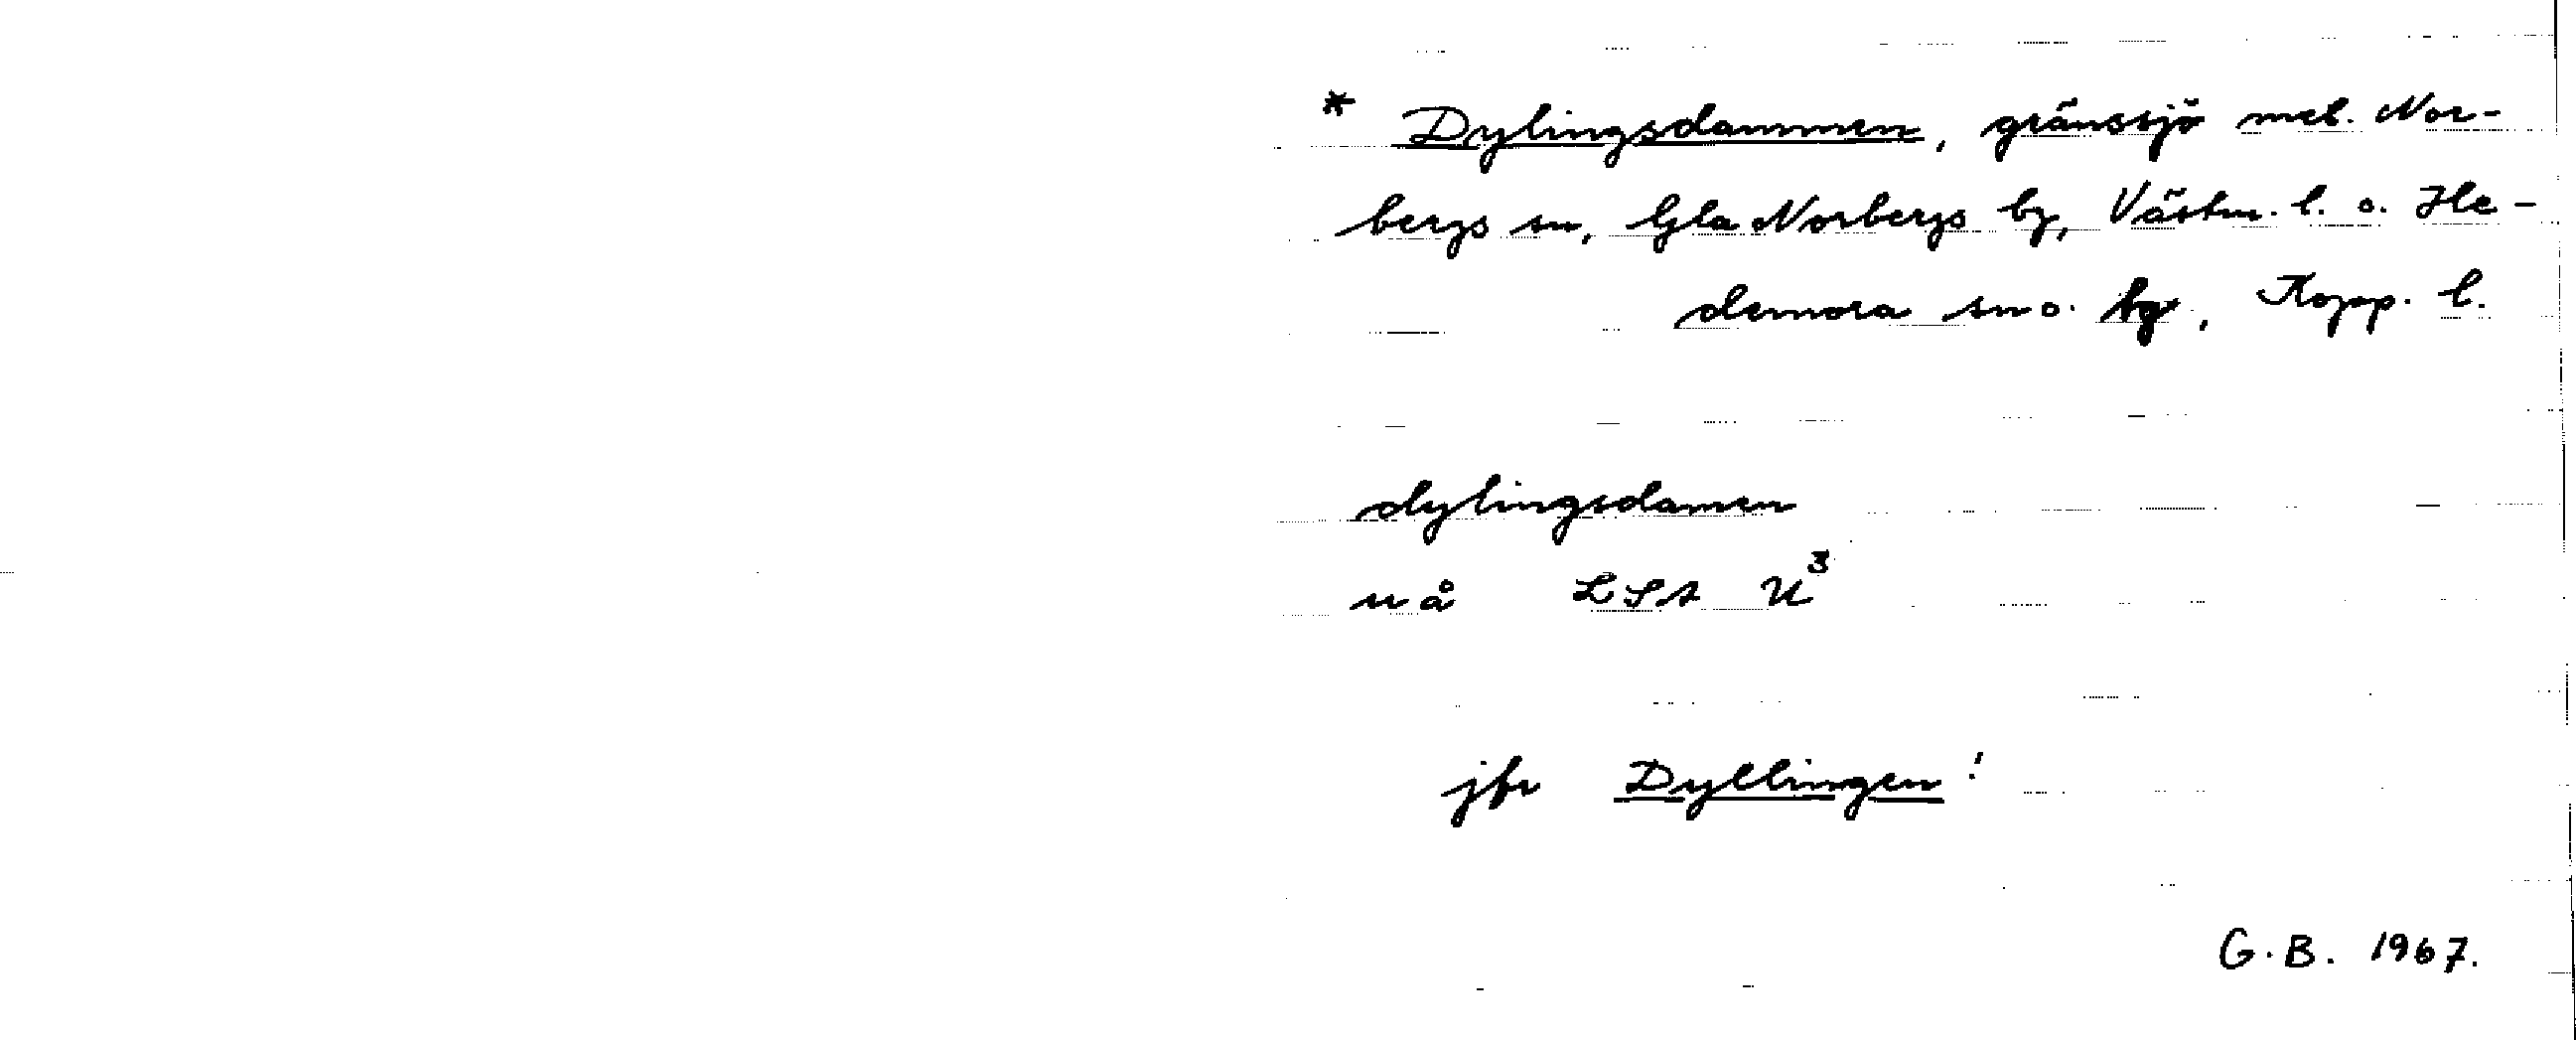 * Dylingsdammen, gränssjö mel. Nor-
bergs sn, Gla Norbergs by, Västm. l. o. He-
demora sn o. by, Kopp. l.
dylingsdamen
uå LSA U³
jfr Dyllingen!
G.B. 1967.